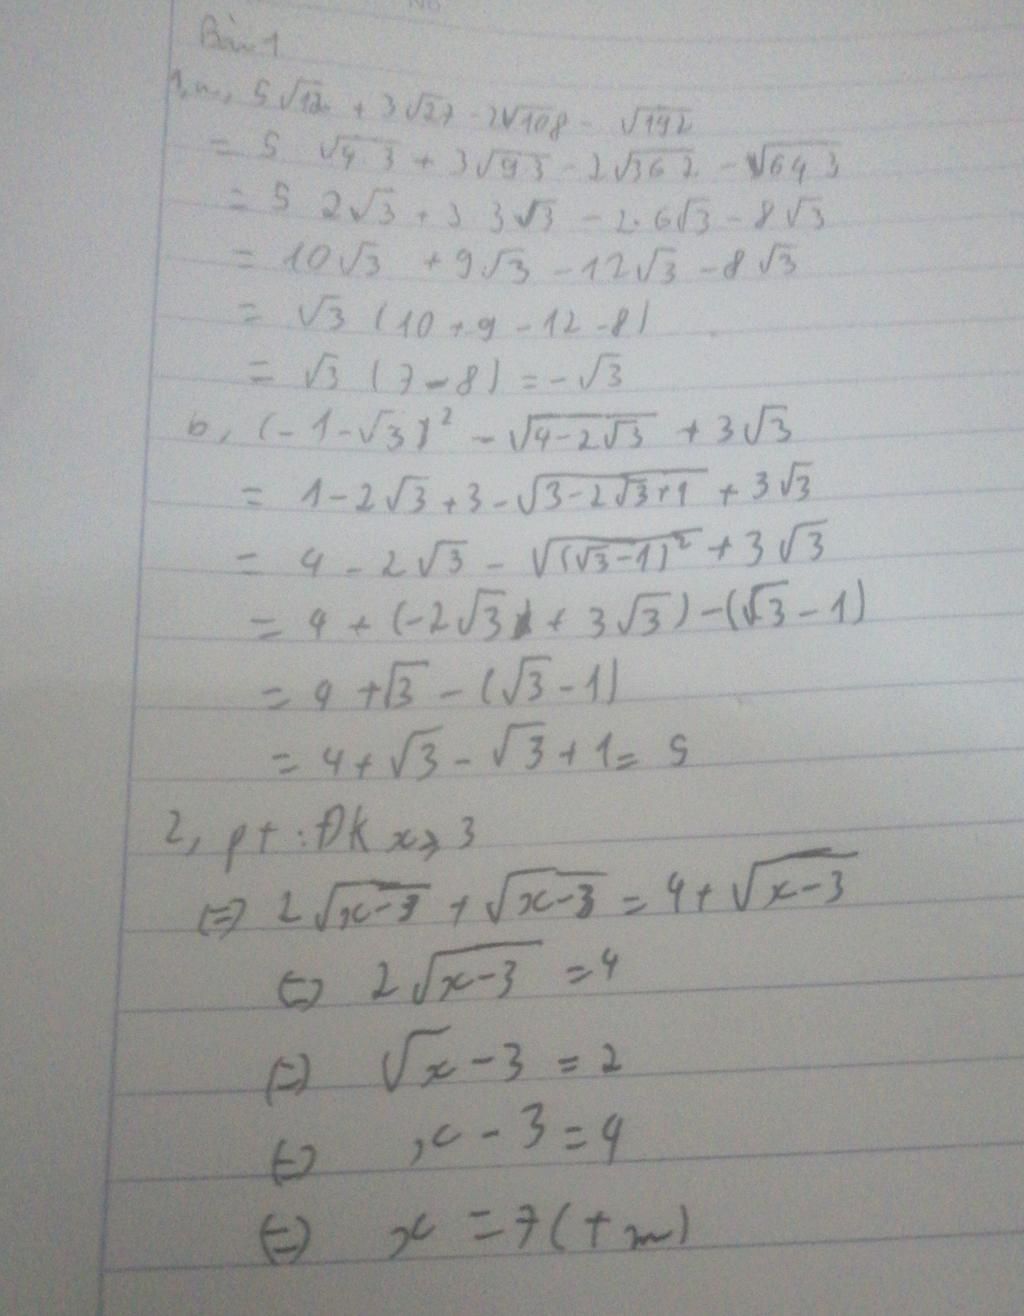 Bài 1
1, a, 5√12 + 3√27 - 2√108 - √192
= 5 √4 3 + 3√9 3 - 2√36 2 - √64 3
= 5 2√3 + 3 3√3 - 2.6√3 - 8√3
= 10√3 + 9√3 - 12√3 - 8√3
= √3 (10 + 9 - 12 - 8)
= √3 (7 - 8) = -√3
b, (-1-√3)² - √(4-2√3) + 3√3
= 1 - 2√3 + 3 - √(3-2√3+1) + 3√3
= 4 - 2√3 - √((√3-1)²) + 3√3
= 4 + (-2√3 + 3√3) - (√3 - 1)
= 4 + √3 - (√3 - 1)
= 4 + √3 - √3 + 1 = 5
2, pt : ĐK x ≥ 3
(=) 2√(x-3) + √(x-3) = 4 + √(x-3)
(=) 2√(x-3) = 4
(=) √x - 3 = 2
(=) x - 3 = 4
(=) x = 7 (t m)